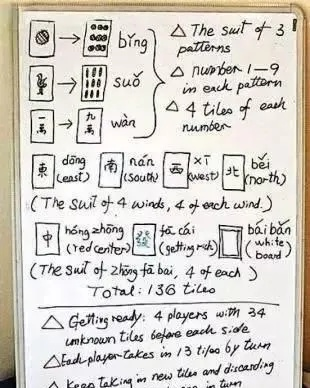 → bǐng △ The suit of 3 patterns
→ suǒ △ number 1-9 in each pattern
一萬 → 九萬 wàn △ 4 tiles of each number
東 dōng (east) 南 nán (South) 西 xī (west) 北 běi (north)
(The suit of 4 winds, 4 of each wind.)
中 hóng zhōng (red center) fā cái (getting rich) bái bǎn (white board)
(The suit of zhōng fā bai, 4 of each)
Total: 136 tiles
△ Getting ready: 4 players with 34
unknown tiles before each side
△ Each player takes in 13 tiles by turn
△ Keep taking in new tiles and discarding
in turn